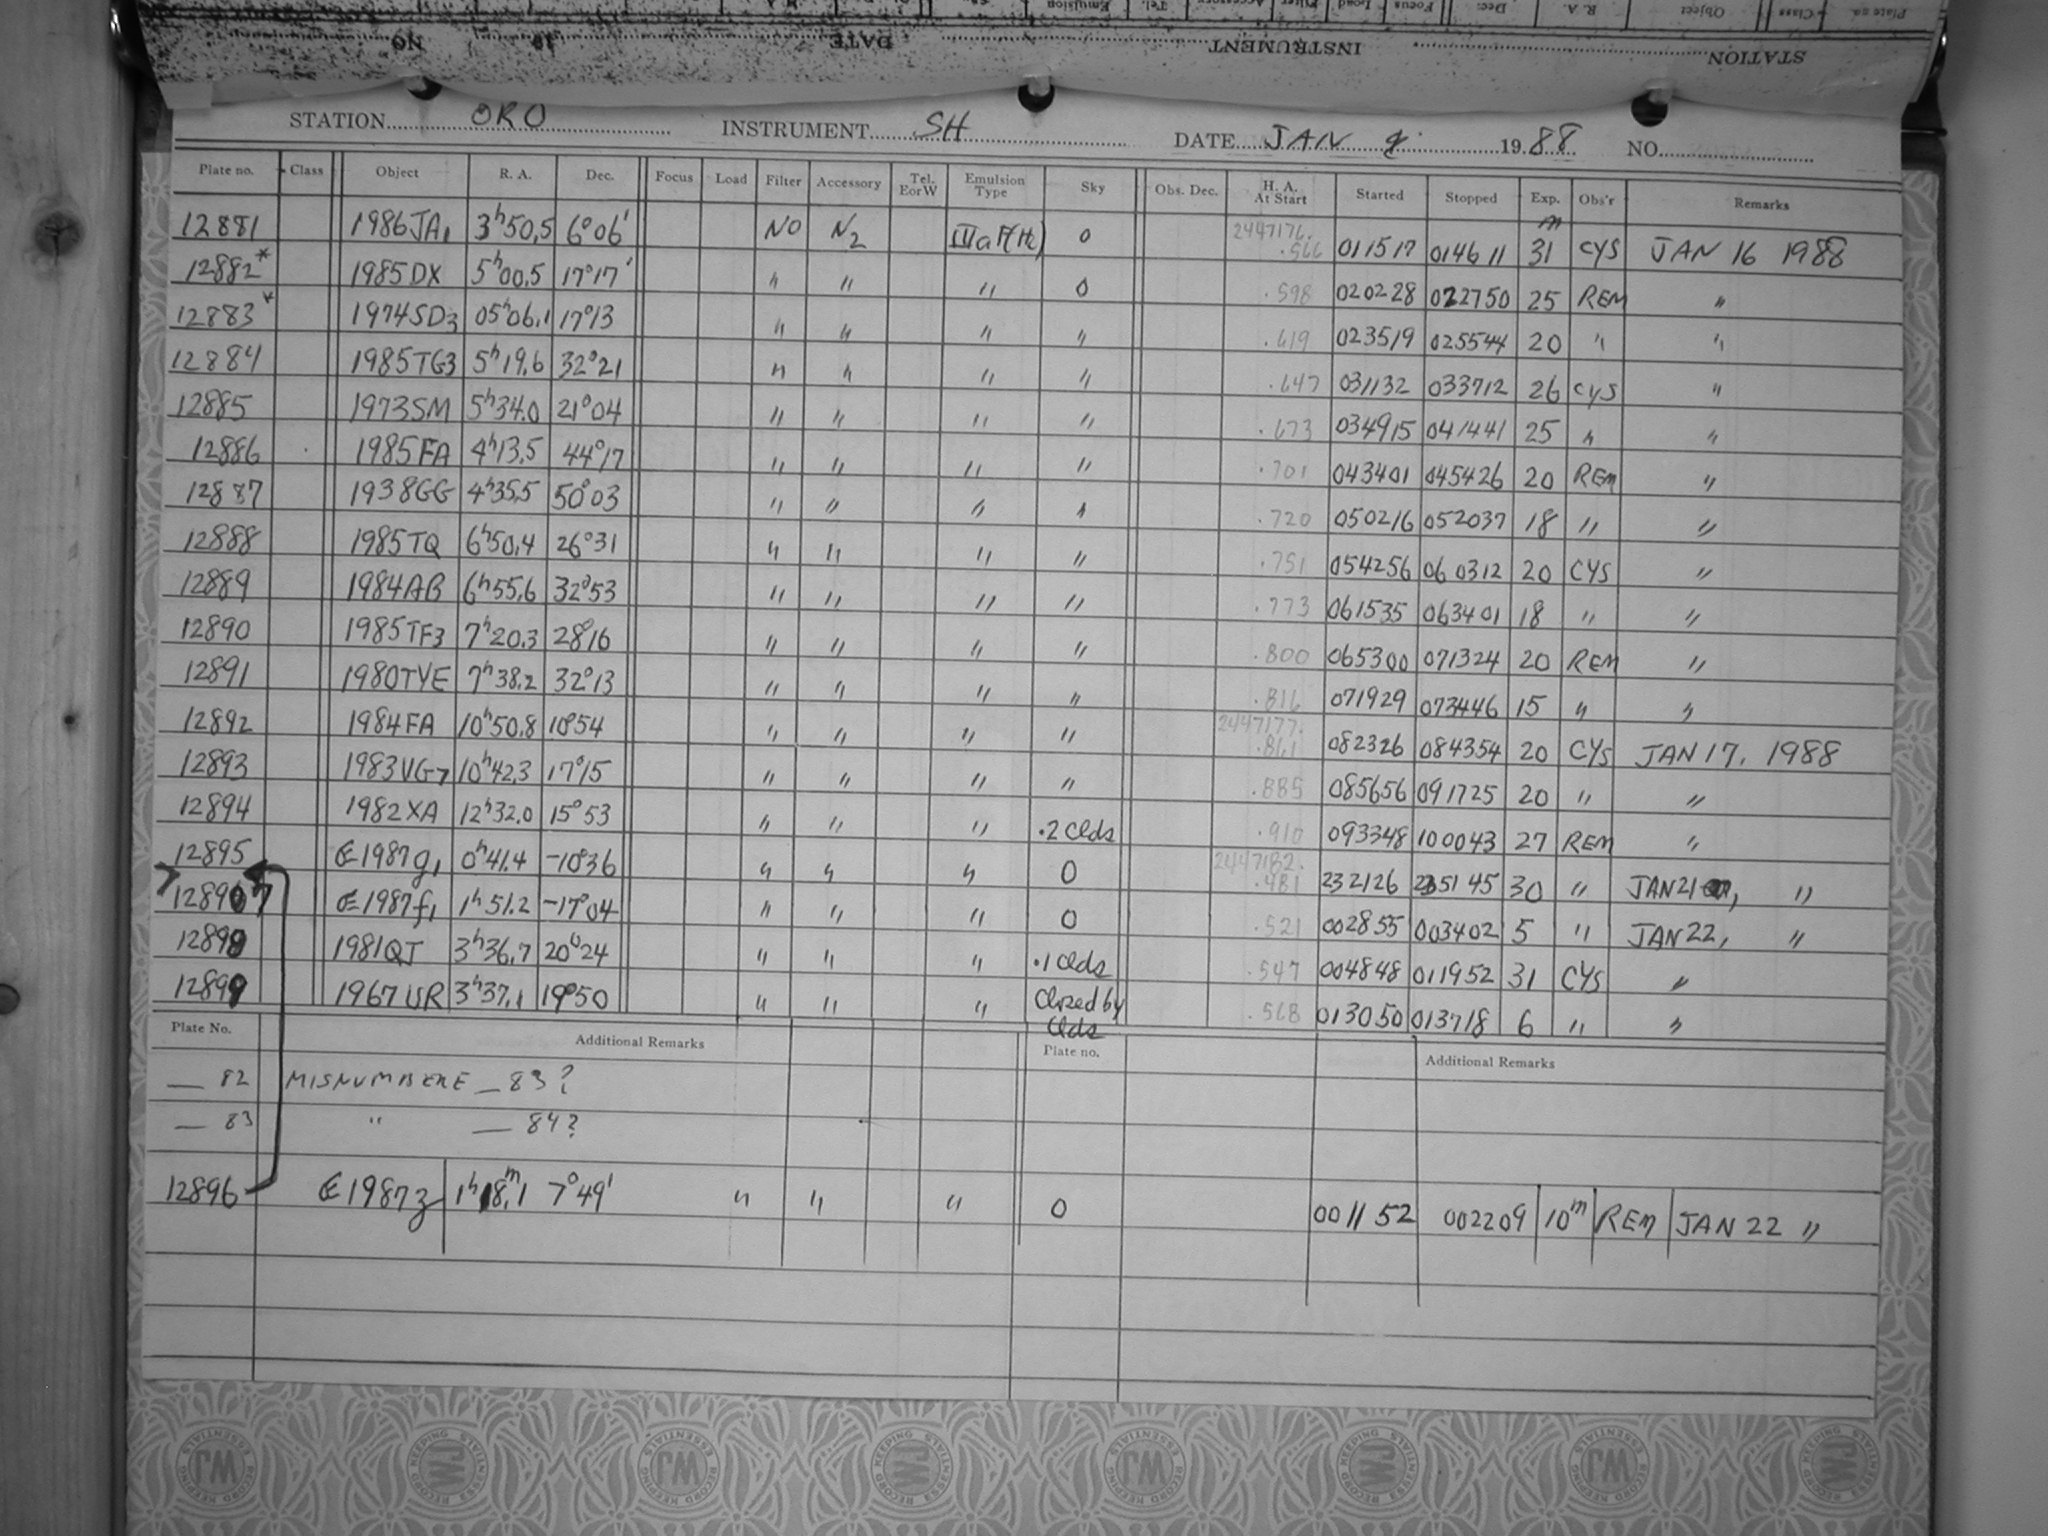 Plate no. Class Object R. A. Dec. Focus Load Filter Accessory Tel. Emulsion
STATION INSTRUMENT DATE 19 NO
STATION ORO INSTRUMENT SH DATE JAN 1988 NO
Plate no. Class Object R. A. Dec. Focus Load Filter Accessory Tel. EorW Emulsion Type Sky Obs. Dec. H. A. At Start Started Stopped Exp. Obs'r Remarks
12881 1986JA1 3h50.5 6°06' NO N2 IIIaF(H2) 0 2447176. .566 011517 014611 31m CYS JAN 16 1988
12882* 1985DX 5h00.5 17°17' " " " 0 .598 020228 022750 25 REM "
12883* 1974SD3 05h06.1 17°13 " " " " .619 023519 025544 20 " "
12884 1985TG3 5h19.6 32°21 " " " " .647 031132 033712 26 CYS "
12885 1973SM 5h34.0 21°04 " " " " .673 034915 041441 25 " "
12886 1985FA 4h13.5 44°17 " " " " .701 043401 045426 20 REM "
12887 1938GG 4h35.5 50°03 " " " " .720 050216 052037 18 " "
12888 1985TQ 6h50.4 26°31 " " " " .751 054256 060312 20 CYS "
12889 1984AB 6h55.6 32°53 " " " " .773 061535 063401 18 " "
12890 1985TF3 7h20.3 28°16 " " " " .800 065300 071324 20 REM "
12891 1980TYE 7h38.2 32°13 " " " " .816 071929 073446 15 " "
12892 1984FA 10h50.8 10°54 " " " " 2447177. .861 082326 084354 20 CYS JAN 17, 1988
12893 1983VG7 10h42.3 17°15 " " " " .885 085656 091725 20 " "
12894 1982XA 12h32.0 15°53 " " " .2 Clds .910 093348 100043 27 REM "
12895 C1987g1 0h41.4 -10°36 " " " 0 2447182. .481 232126 235145 30 " JAN 21, "
12897 C1987f1 1h51.2 -17°04 " " " 0 .521 002855 003402 5 " JAN 22, "
12898 1981QJ 3h36.7 20°24 " " " .1 Clds .547 004848 011952 31 CYS "
12899 1967UR 3h37.1 19°50 " " " Closed by Clds .568 013050 013718 6 " "
Plate No. Additional Remarks Plate no. Additional Remarks
— 82 MISNUMBERE — 83?
— 83 " — 84?
12896 C1987z 1h18m.1 7°49' " " " 0 001152 002209 10m REM JAN 22 "
RECORD KEEPING ESSENTIALS